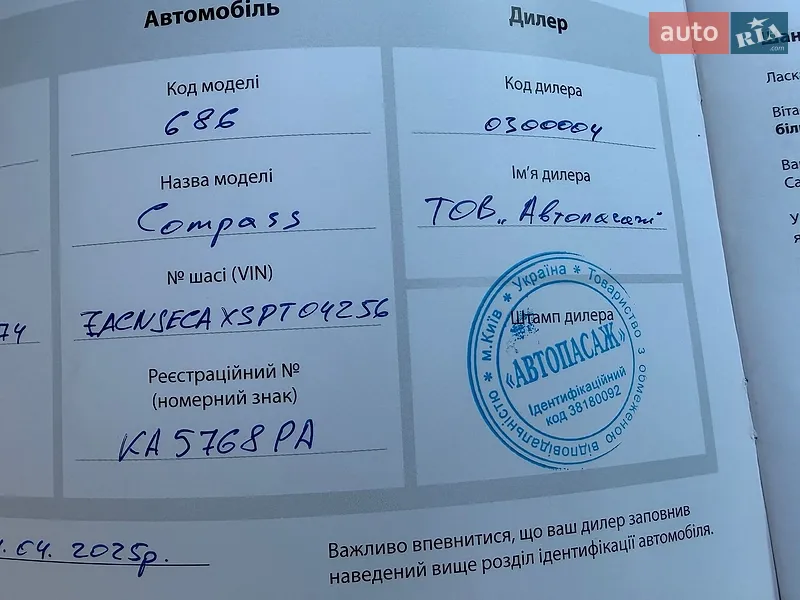 auto RIA .com
Автомобіль
Дилер
Код моделі
686
Назва моделі
Compass
№ шасі (VIN)
ZACNJECAXSPT04256
Реєстраційний №
(номерний знак)
KA5768PA
Код дилера
0300004
Ім'я дилера
ТОВ „Автопасаж"
Штамп дилера
м.Київ * Україна * Товариство з обмеженою відповідальністю *
«АВТОПАСАЖ»
Ідентифікаційний
код 38180092
74
04. 2025р.
Важливо впевнитися, що ваш дилер заповнив
наведений вище розділ ідентифікації автомобіля.